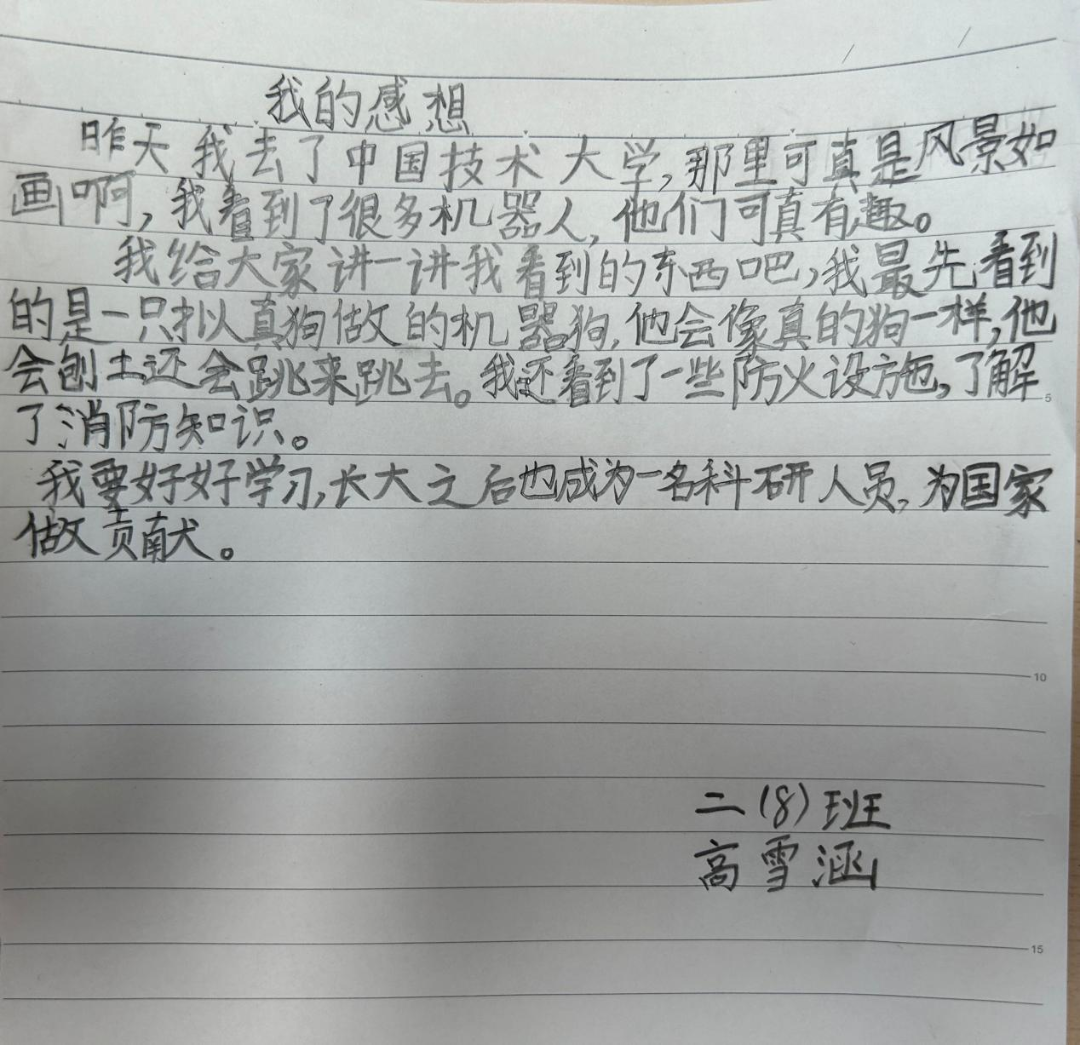 我的感想
昨天我去了中国技术大学,那里可真是风景如
画啊,我看到了很多机器人,他们可真有趣。
我给大家讲一讲我看到的东西吧,我最先看到
的是一只拟真狗做的机器狗,他会像真的狗一样,他
会刨土还会跳来跳去。我还看到了一些防火设施,了解
了消防知识。
我要好好学习,长大之后也成为一名科研人员,为国家
做贡献。
二(8)班
高雪涵
5
10
15